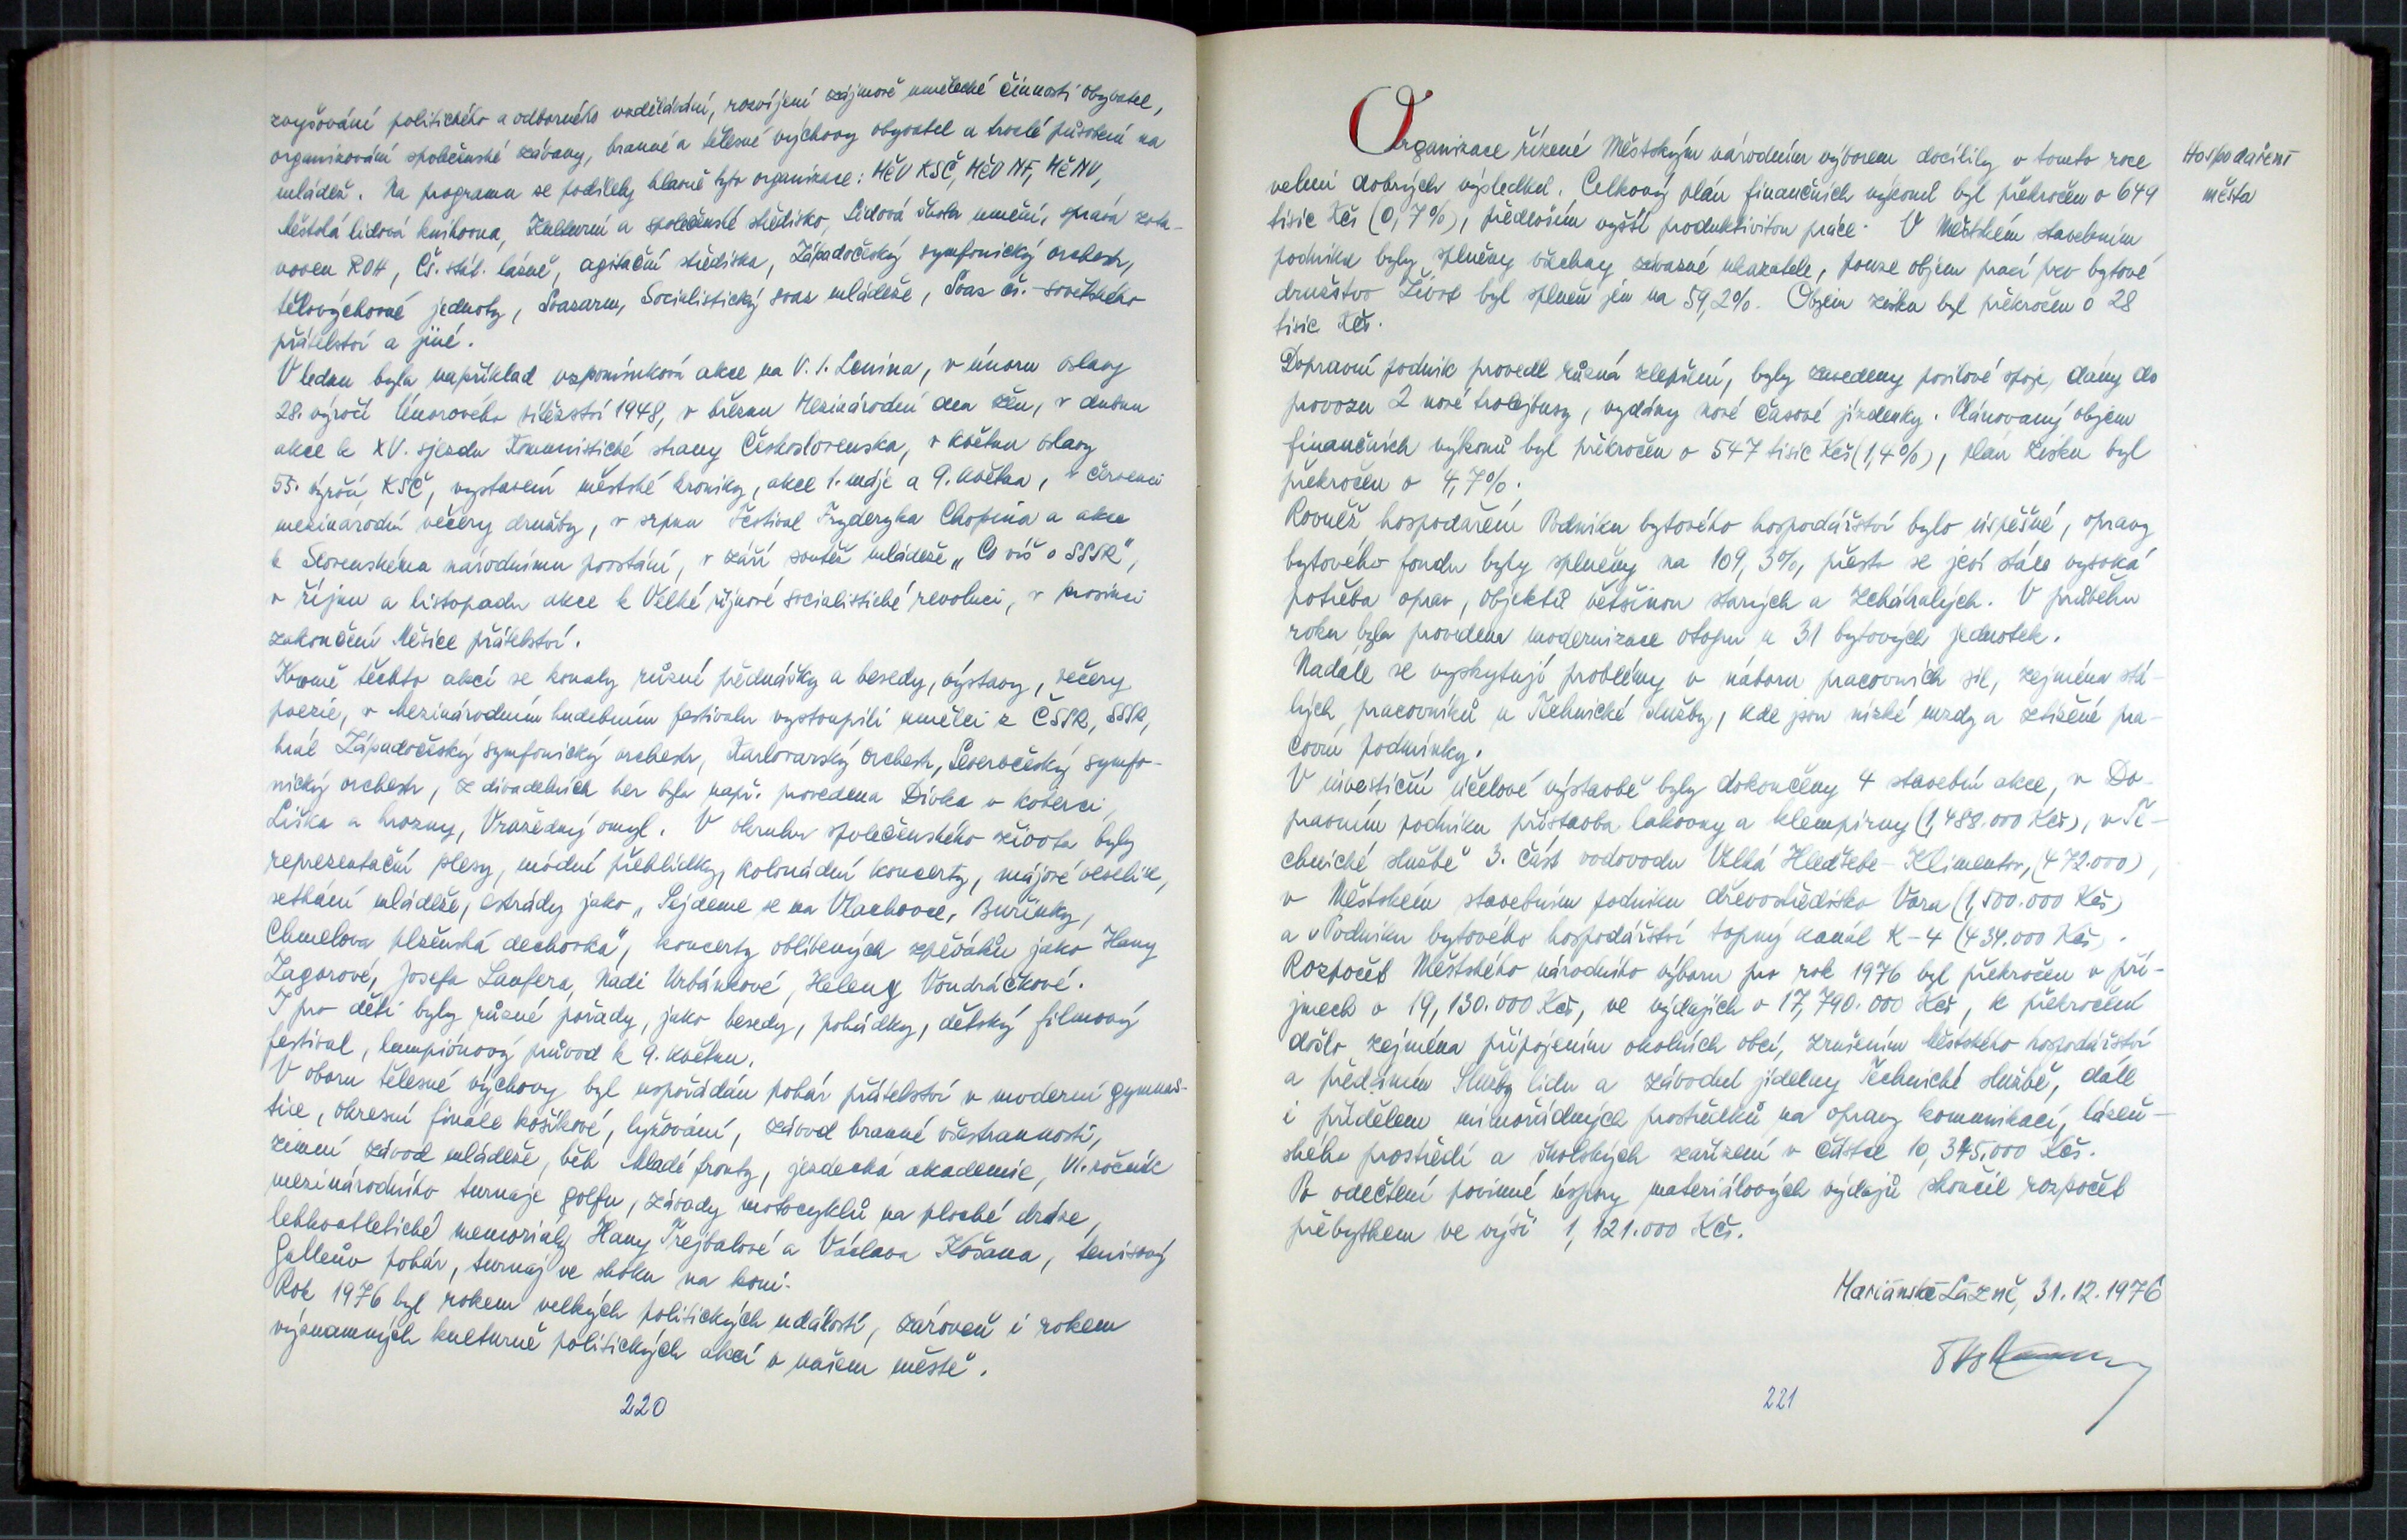 zvyšování politického a odborného vzdělávání, rozvíjení zájmově umělecké činnosti obyvatel,
organizování společenské zábavy, branné a tělesné výchovy obyvatel a trvalé působení na
mládež. Na programu se podílely hlavně tyto organizace: MěV KSČ, MěV NF, MěNV,
Městská lidová knihovna, Kulturní a společenské středisko, Lidová škola umění, správa zota-
voven ROH, Čs. stát. lázně, agitační střediska, Západočeský symfonický orchestr,
tělovýchovné jednoty, Svazarm, Socialistický svaz mládeže, Svaz čs.-sovětského
přátelství a jiné.
V lednu byla například vzpomínková akce na V. I. Lenina, v únoru oslavy
28. výročí Únorového vítězství 1948, v březnu Mezinárodní den žen, v dubnu
akce k XV. sjezdu Komunistické strany Československa, v květnu oslavy
55. výročí KSČ, vystavení městské kroniky, akce 1. máje a 9. května, v červenci
mezinárodní večery družby, v srpnu Festival Fryderyka Chopina a akce
k Slovenskému národnímu povstání, v září soutěž mládeže „Co víš o SSSR",
v říjnu a listopadu akce k Velké říjnové socialistické revoluci, v prosinci
zakončení Měsíce přátelství.
Kromě těchto akcí se konaly různé přednášky a besedy, výstavy, večery
poezie, v Mezinárodním hudebním festivalu vystoupili umělci z ČSSR, SSSR,
hrál Západočeský symfonický orchestr, Karlovarský orchestr, Severočeský symfo-
nický orchestr, z divadelních her byla např. provedena Dívka v koberci,
Liška a hrozny, Vražedný omyl. V okruhu společenského života byly
reprezentační plesy, módní přehlídky, kolonádní koncerty, májové veselice,
setkání mládeže, estrády jako „Sejdeme se na Vlachovce, Buřinky,
Chmelova plzeňská dechovka", koncerty oblíbených zpěváků jako Hany
Zagorové, Josefa Laufera, Nadi Urbánkové, Heleny Vondráčkové.
I pro děti byly různé pořady, jako besedy, pohádky, dětský filmový
festival, lampiónový průvod k 9. květnu.
V oboru tělesné výchovy byl uspořádán pohár přátelství v moderní gymnas-
tice, okresní finále košíkové, lyžování, závod branné všestrannosti,
zimní závod mládeže, běh Mladé fronty, jezdecká akademie, VI. ročník
mezinárodního turnaje golfu, závody motocyklů na ploché dráze,
lehkoatletické memoriály Hany Trejbalové a Václava Košana, tenisový
Gulleův pohár, turnaj ve skoku na koni.
Rok 1976 byl rokem velkých politických událostí, zároveň i rokem
významných kulturně politických akcí v našem městě.
220
Organizace řízené Městským národním výborem docílily v tomto roce
velmi dobrých výsledků. Celkový plán finančních výkonů byl překročen o 649
tisíc Kčs (0,7%), především vyšší produktivitou práce. V Městském stavebním
podniku byly splněny všechny závazné ukazatele, pouze objem prací pro bytové
družstvo Život byl splněn jen na 59,2%. Objem zisku byl překročen o 28
tisíc Kčs.
Dopravní podnik provedl různá zlepšení, byly zavedeny posilové spoje, dány do
provozu 2 nové trolejbusy, vydány nové časové jízdenky. Plánovaný objem
finančních výkonů byl překročen o 547 tisíc Kčs (1,4%), plán zisku byl
překročen o 4,7%.
Rovněž hospodaření Podniku bytového hospodářství bylo úspěšné, opravy
bytového fondu byly splněny na 109,3%, přesto se jeví stále vysoká
potřeba oprav, objektů většinou starých a zchátralých. V průběhu
roku byla provedena modernizace otopu u 31 bytových jednotek.
Nadále se vyskytují problémy v náboru pracovních sil, zejména stá-
lých pracovníků u Technické služby, kde jsou nízké mzdy a ztížené pra-
covní podmínky.
V investiční účelové výstavbě byly dokončeny 4 stavební akce, v Do-
pravním podniku přístavba lakovny a klempírny (1,488.000 Kčs), v Te-
chnické službě 3. část vodovodu Velká Hleďsebe - Klimentov, (472.000),
v Městském stavebním podniku dřevostředisko Vora (1,500.000 Kčs)
a v Podniku bytového hospodářství topný kanál K-4 (434.000 Kčs).
Rozpočet Městského národního výboru pro rok 1976 byl překročen v pří-
jmech o 19,130.000 Kčs, ve výdajích o 17,790.000 Kčs, k překročení
došlo zejména připojením okolních obcí, zrušením Městského hospodářství
a předáním Služby lidu a závodní jídelny Technické službě, dále
i přídělem mimořádných prostředků na opravy komunikací, lázeň-
ského prostředí a školských zařízení v částce 10,345.000 Kčs.
Po odečtení povinné úspory materiálových výdajů skončil rozpočet
přebytkem ve výši 1,121.000 Kčs.
Hospodaření
města
Mariánské Lázně, 31.12.1976
221